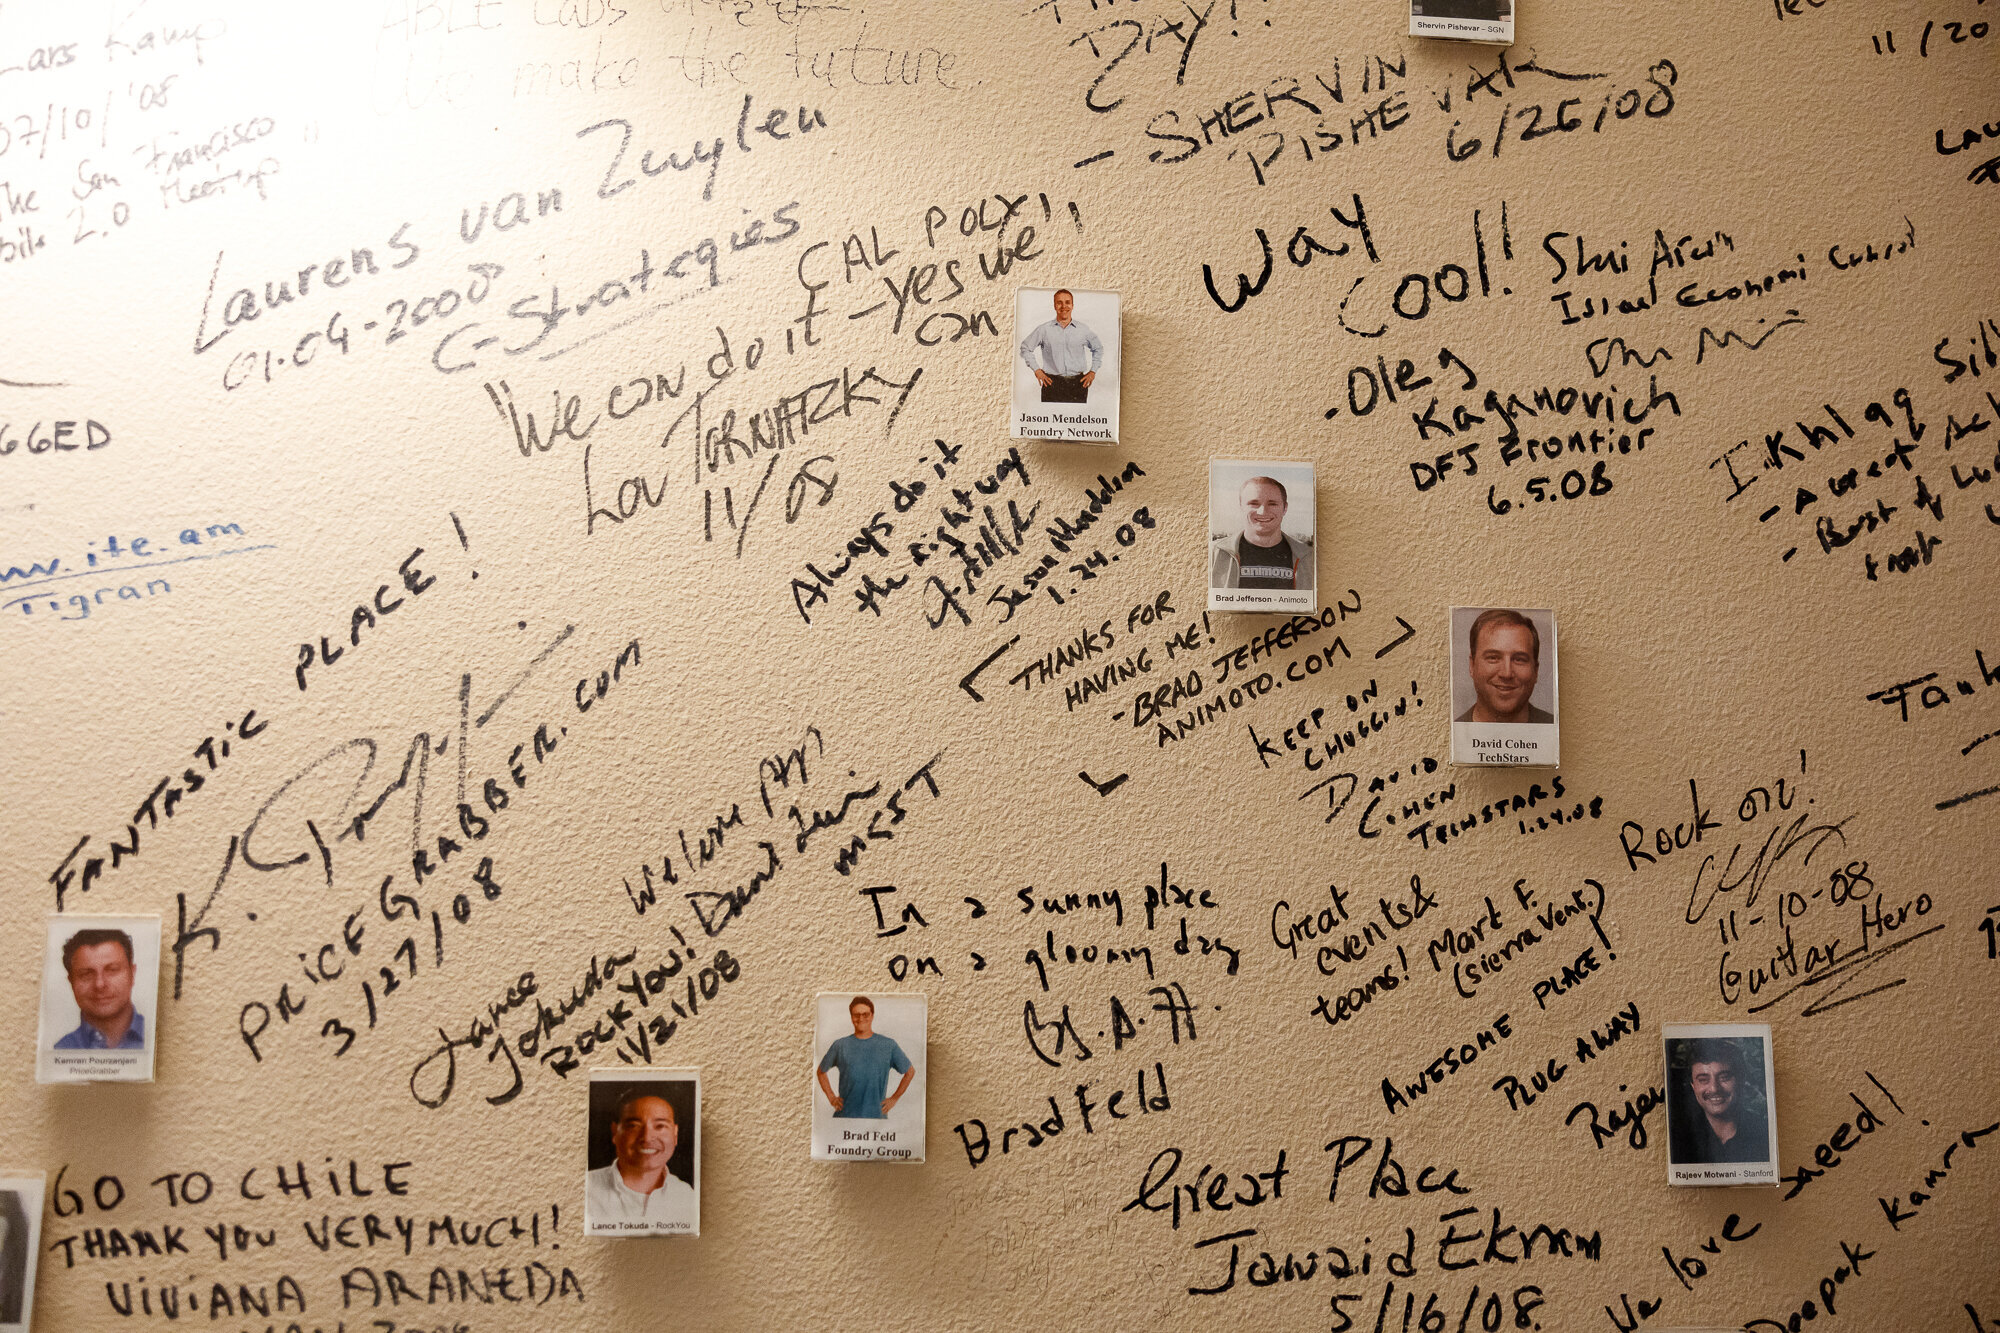 Lars Kamp
07/10/'08
The San Francisco
2.0 Meetup
ABLE Labs
We make the future.
DAY!!
- SHERVIN
PISHEVAR
6/26/08
Shervin Pishevar - SGN
11/20
Laurens van Zuylen
01-04-2008
C-Strategies
CAL POLY!!
"We can do it - yes we
can
Lou TORNATZKY
11/08
Way
Cool!!
- Oleg
Kaganovich
DFJ Frontier
6.5.08
Israel
Ikhlaq
GGED
ite.am
Tigran
Jason Mendelson
Foundry Network
Always do it
the right way
Jason Mendelson
1.24.08
Brad Jefferson - Animoto
animoto
THANKS FOR
HAVING ME!
- BRAD JEFFERSON
ANIMOTO.COM
David Cohen
TechStars
KEEP ON
CHUGGIN'!
DAVID
COHEN
TECHSTARS
1.24.08
FANTASTIC PLACE!
PRICEGRABBER.COM
3/27/08
Kamran Pourzanjani
PriceGrabber
Lance
Tokuda
ROCKYOU!
11/21/08
Lance Tokuda - RockYou
In a sunny place
on a gloomy day
Brad Feld
Brad Feld
Foundry Group
Great
events &
teams! Mark F.
(Sierra Vent.)
Rock on!
11-10-08
Guitar Hero
AWESOME PLACE!
PLUG AWAY
Rajeev
Rajeev Motwani - Stanford
GO TO CHILE
THANK YOU VERY MUCH!
VIVIANA ARANEDA
Great Place
Jawaid Ekram
5/16/08.
We love speed!
Deepak Kamra